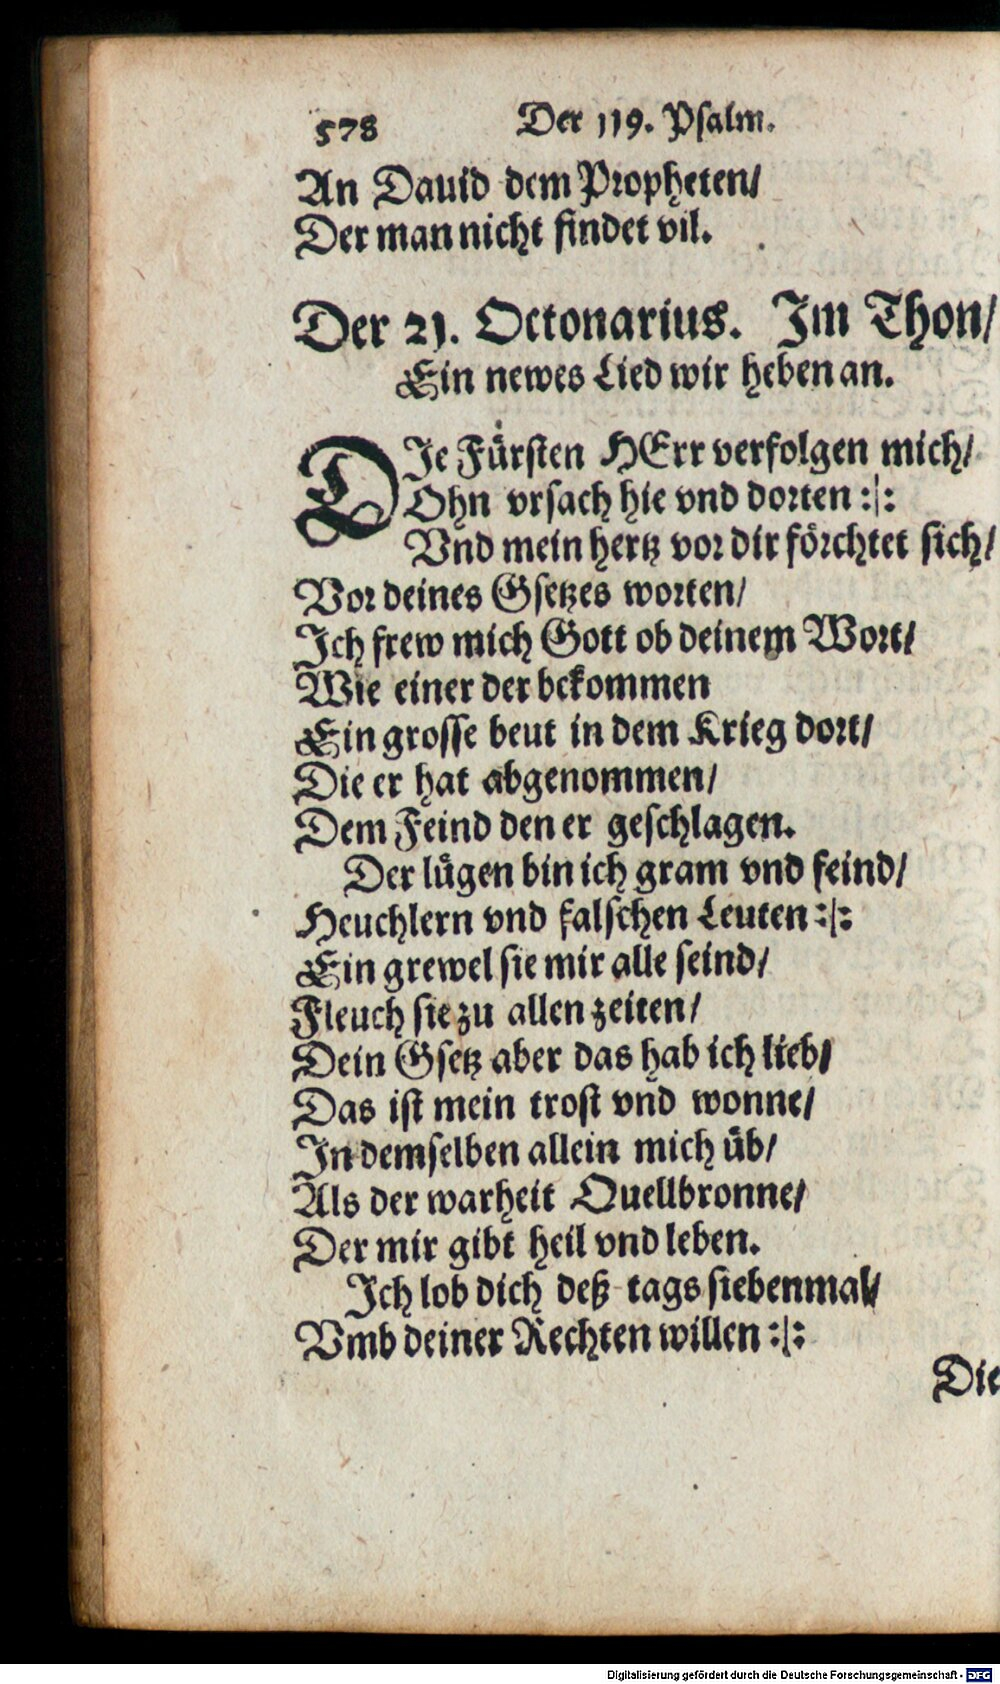 578 Der 119. Psalm.
An Dauid dem Propheten/
Der man nicht findet vil.
Der 21. Octonarius. Im Thon/
Ein newes Lied wir heben an.
DIe Fürsten HErr verfolgen mich/
Ohn vrsach hie vnd dorten :|:
Vnd mein hertz vor dir förchtet sich/
Vor deines Gsetzes worten/
Ich frew mich Gott ob deinem Wort/
Wie einer der bekommen
Ein grosse beut in dem Krieg dort/
Die er hat abgenommen/
Dem Feind den er geschlagen.
Der lügen bin ich gram vnd feind/
Heuchlern vnd falschen Leuten :|:
Ein grewel sie mir alle seind/
Fleuch sie zu allen zeiten/
Dein Gsetz aber das hab ich lieb/
Das ist mein trost vnd wonne/
In demselben allein mich üb/
Als der warheit Quellbronne/
Der mir gibt heil vnd leben.
Ich lob dich deß tags siebenmal/
Vmb deiner Rechten willen :|:
Die
Digitalisierung gefördert durch die Deutsche Forschungsgemeinschaft - DFG